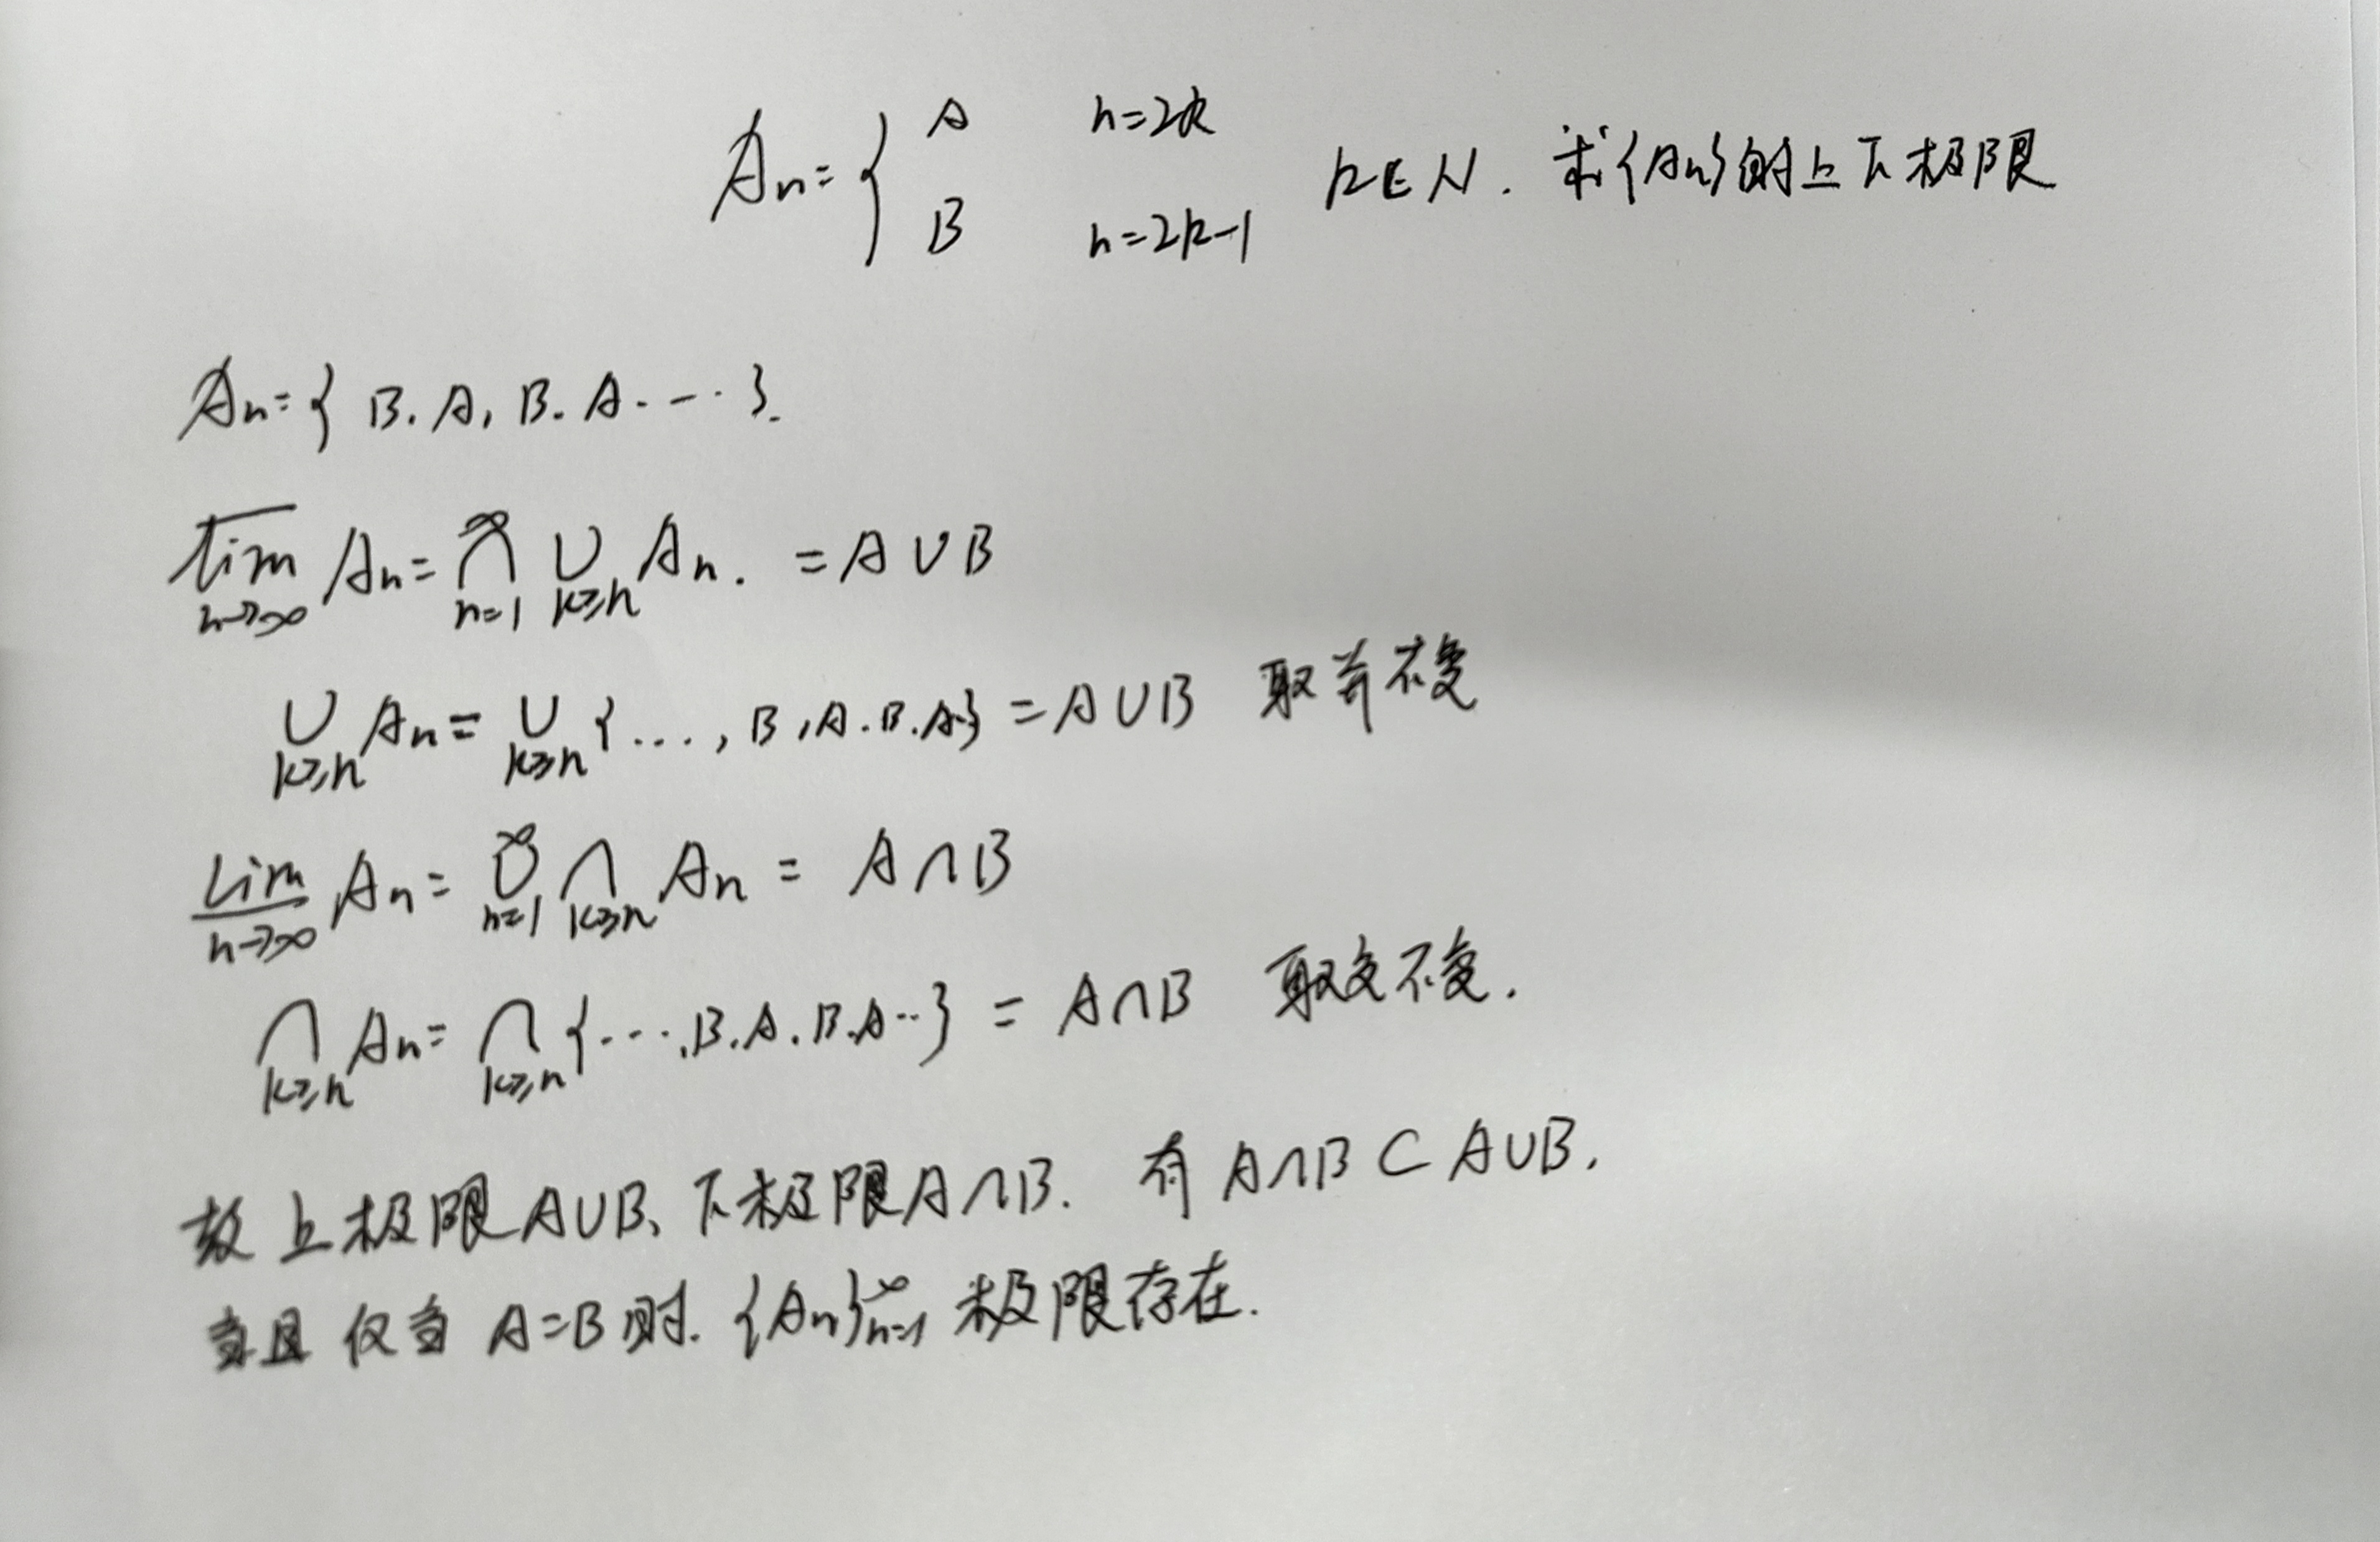 Aₙ = { A n=2k
B n=2k-1 k∈N. 求{Aₙ}的上下极限
Aₙ = { B. A, B. A. … }.
lim̅ₙ→∞ Aₙ = ∩ₙ₌₁^∞ ∪ₖ≥ₙ Aₙ. = A∪B
∪ₖ≥ₙ Aₙ = ∪ₖ≥ₙ {…, B, A. B. A.} = A∪B 取并不变
lim̲ₙ→∞ Aₙ = ∪ₙ₌₁^∞ ∩ₖ≥ₙ Aₙ = A∩B
∩ₖ≥ₙ Aₙ = ∩ₖ≥ₙ {…. B. A. B. A..} = A∩B 取交不变.
故上极限A∪B、下极限A∩B. 有 A∩B ⊂ A∪B.
当且仅当 A=B时. {Aₙ}ₙ₌₁^∞ 极限存在.